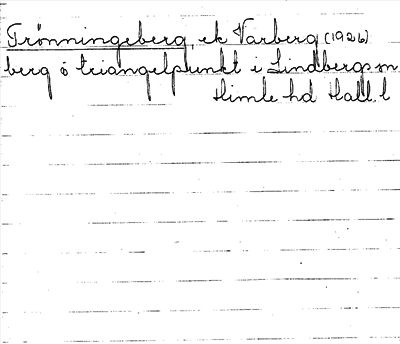 Trönningeberg, ek Varberg (1926)
berg o triangelpunkt i Lindbergs sn
Himle hd Hall. l